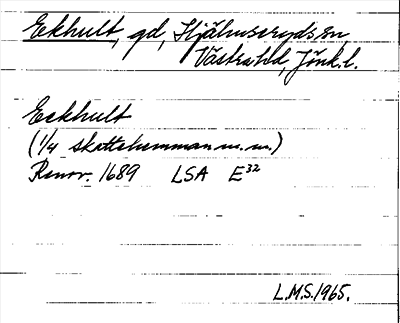 Ekhult, gd, Hjälmseryds sn
Västra hd, Jönk. l.
Eckhult
(1/4 skattehemman m.m.)
Renov. 1689 LSA E32
L.M.S. 1965.